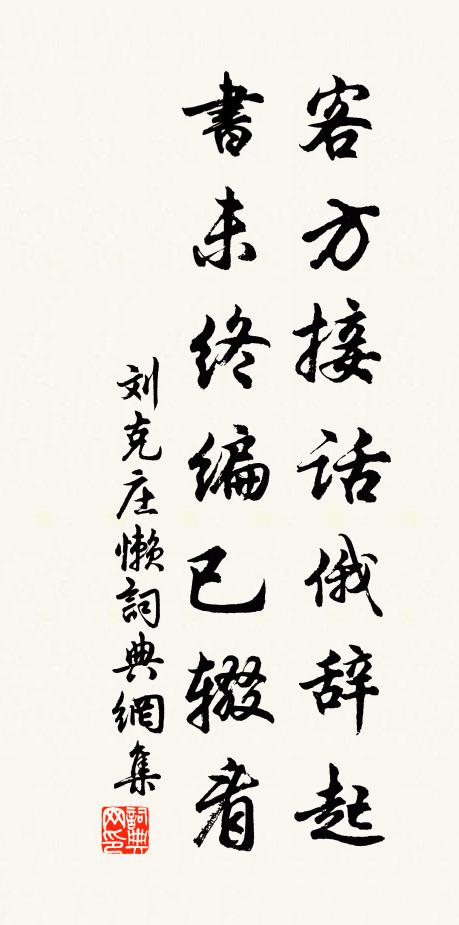 客方接话俄辞起
書未终编已辍看
刘克庄懒詞典網集
詞典网印